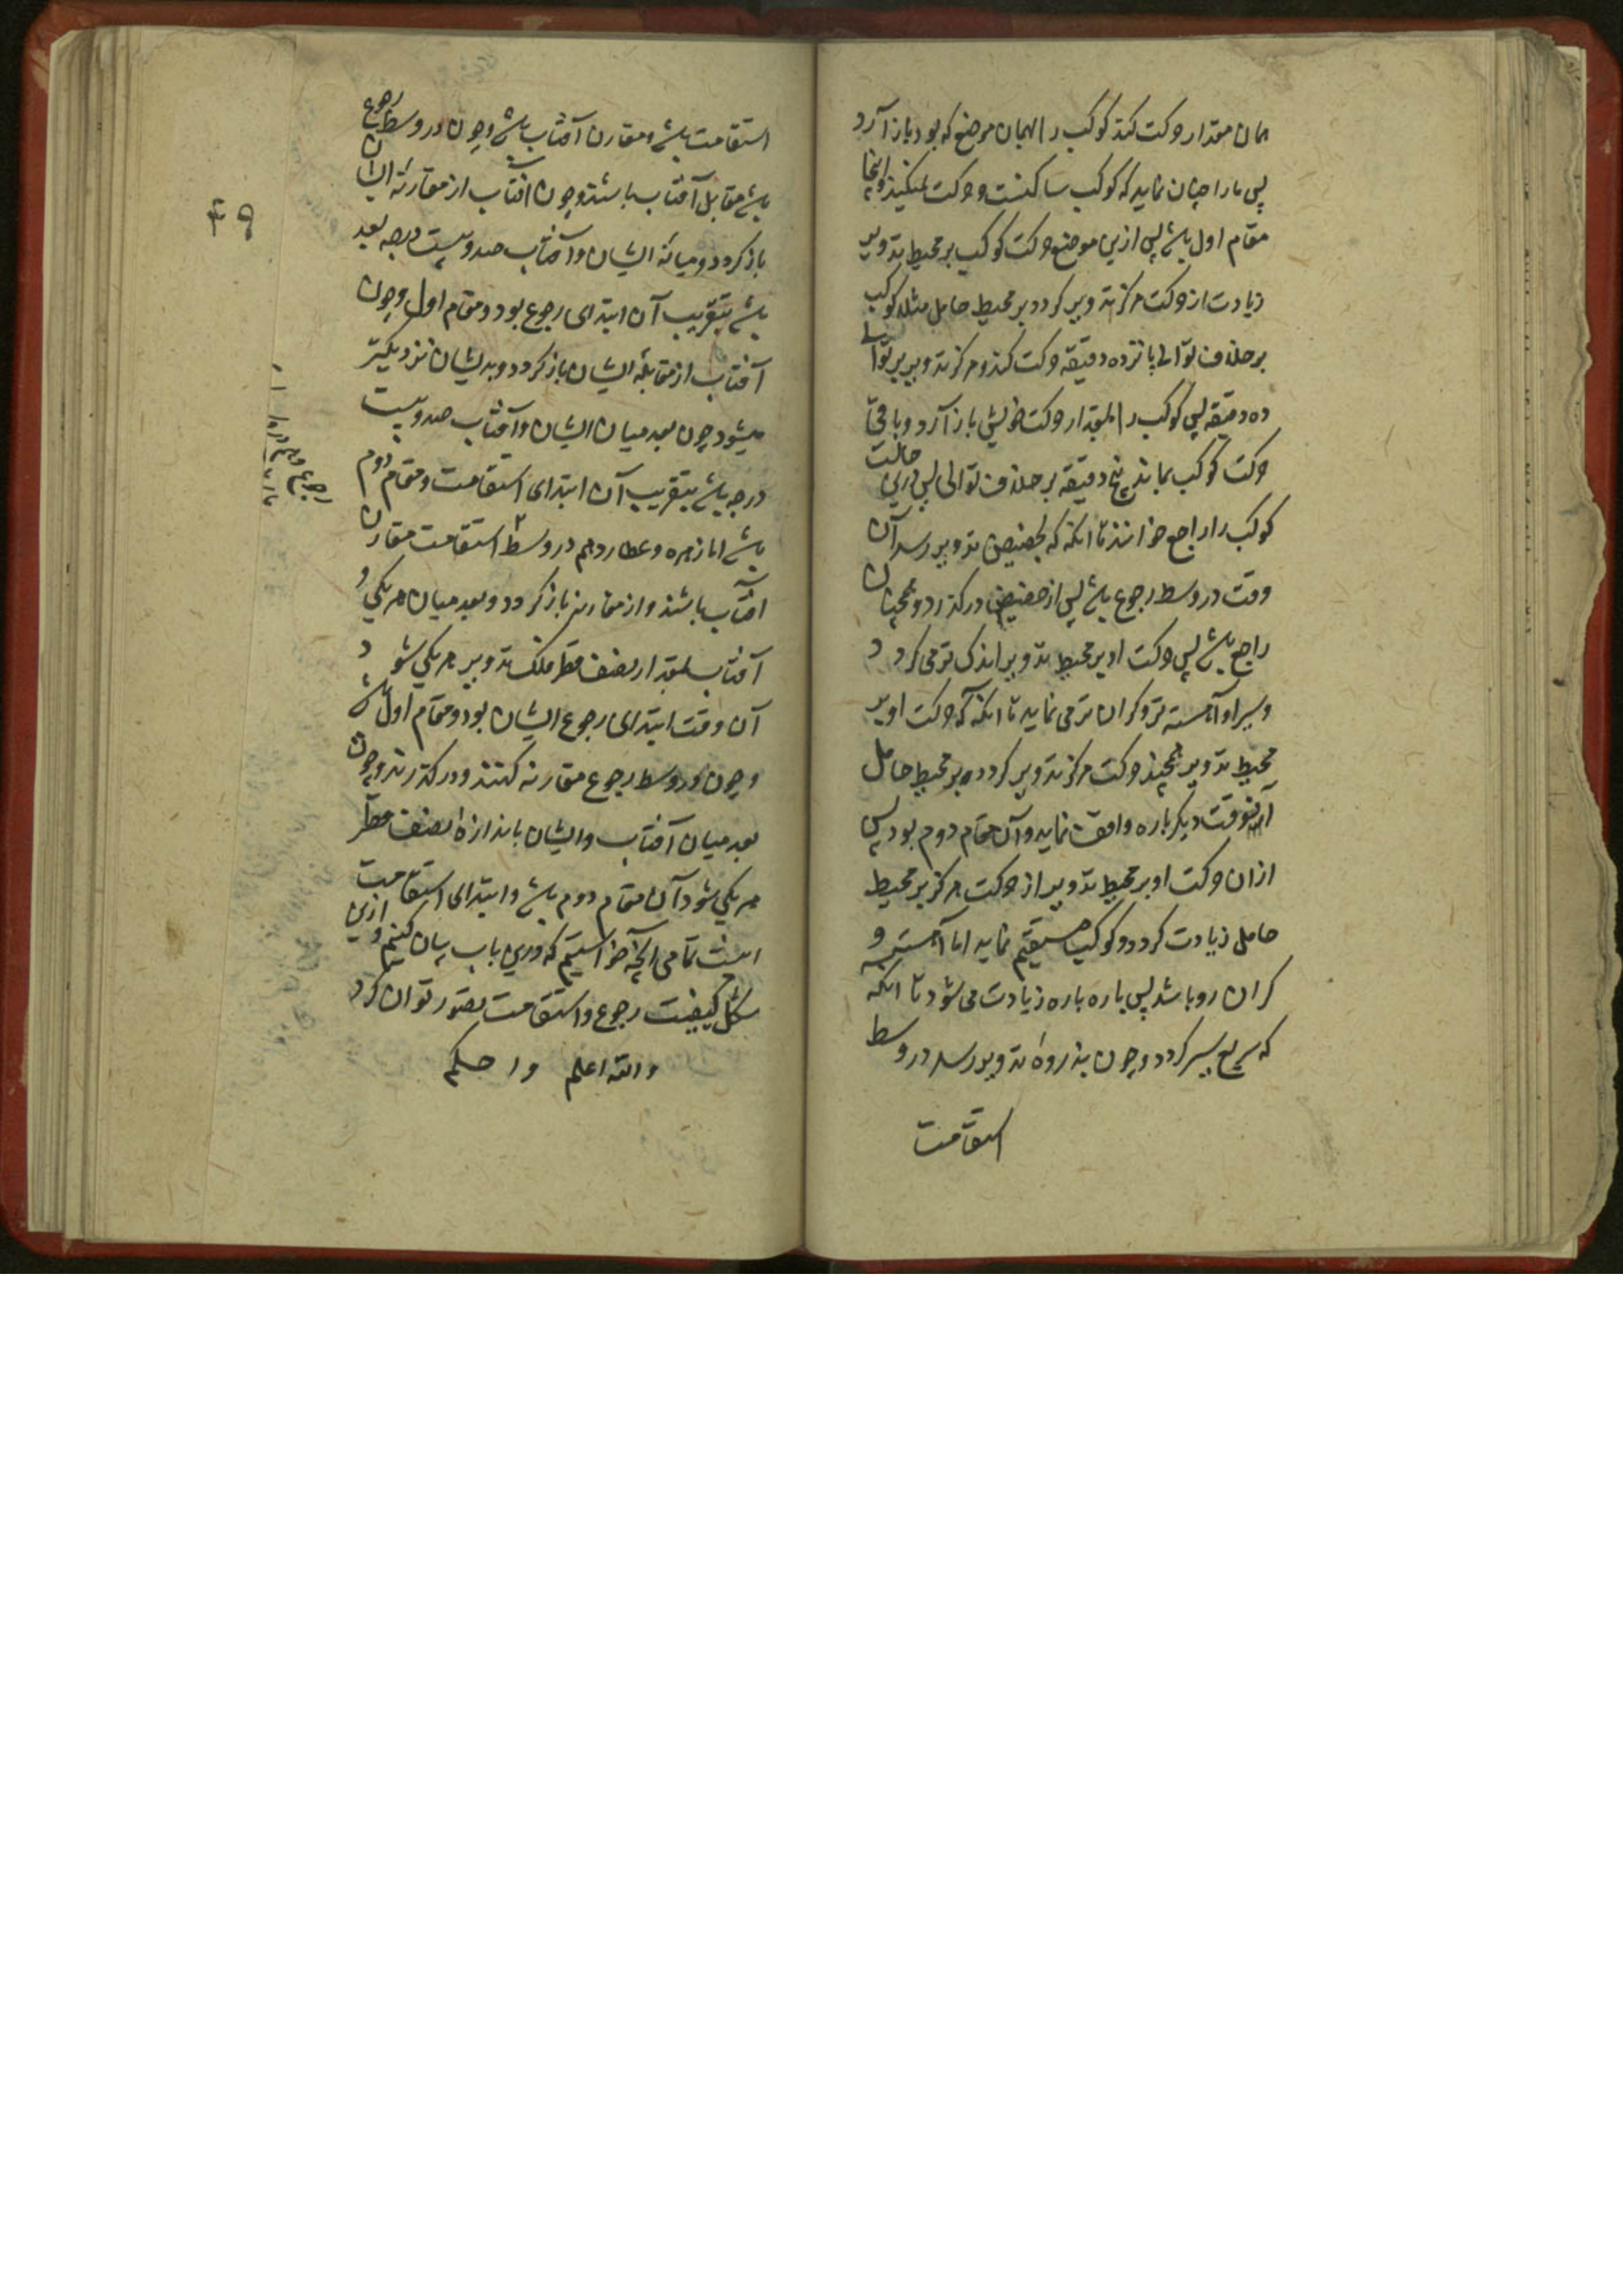 همان مقدار حرکت کند کوکب را بهمان موضع که بود باز آرد
پس ما را چنان نماید که کوکب ساکنست و حرکت نمیکند و اینجا
مقام اول باشد پس ازین موضع حرکت کوکب بر محیط تدویر
زیادت از حرکت مرکز تدویر کردد بر محیط حامل مثلا کوکب
بر خلاف توالی پانزده دقیقه حرکت کند و مرکز تدویر بر توالی
ده دقیقه پس کوکب را بمقدار حرکت خویش باز آرد و باقی
حرکت کوکب بماند پنج دقیقه بر خلاف توالی پس درین حالت
کوکب را راجع خوانند تا انکه که بحضیض تدویر رسد آن
وقت در وسط رجوع باشد پس از حضیض درکذرد و همچنان
راجع باشد پس حرکت او بر محیط تدویر اندک تر می کردد
و سیر او آهسته تر و کران تر می نماید تا انکه که حرکت او بر
محیط تدویر همچند حرکت مرکز تدویر کردد بر محیط حامل
آنوقت دیکر باره واقف نماید و آن مقام دوم بود پس
ازان حرکت او بر محیط تدویر از حرکت مرکز بر محیط
حامل زیادت کردد و کوکب مستقیم نماید اما آهسته و
کران رو باشد پس باره باره زیادت می شود تا انکه
که سریع سیر کردد و چون بذروه تدویر رسد در وسط
استقامت
استقامت باشد و مقارن آفتاب باشد و چون در وسط رجوع
باشد مقابل آفتاب باشند و چون آفتاب از مقارنه ایشان
باز کردد و میانه ایشان و آفتاب صد و بیست درجه بعد
باشد بتقریب آن ابتدای رجوع بود و مقام اول و چون
آفتاب از مقابله ایشان باز کردد و بدیشان نزدیکتر
میشود چون بعد میان ایشان و آفتاب صد و بیست
درجه باشد بتقریب آن ابتدای استقامت و مقام دوم
باشد اما زهره و عطارد هم در وسط استقامت مقارن
آفتاب باشند و از مقارنه باز کردد و بعد میان هر یکی و
آفتاب بمقدار نصف قطر فلک تدویر هر یکی شود
آن وقت ابتدای رجوع ایشان بود و مقام اول باشد
و چون در وسط رجوع مقارنه کنند و درکذرند و چون
بعد میان آفتاب و ایشان باندازه نصف قطر
هر یکی شود آن مقام دوم باشد و ابتدای استقامت
اینست تمامی آنچه خواستیم که درین باب بیان کنیم و ازین
شکل کیفیت رجوع و استقامت تصور توان کرد
والله اعلم و احکم